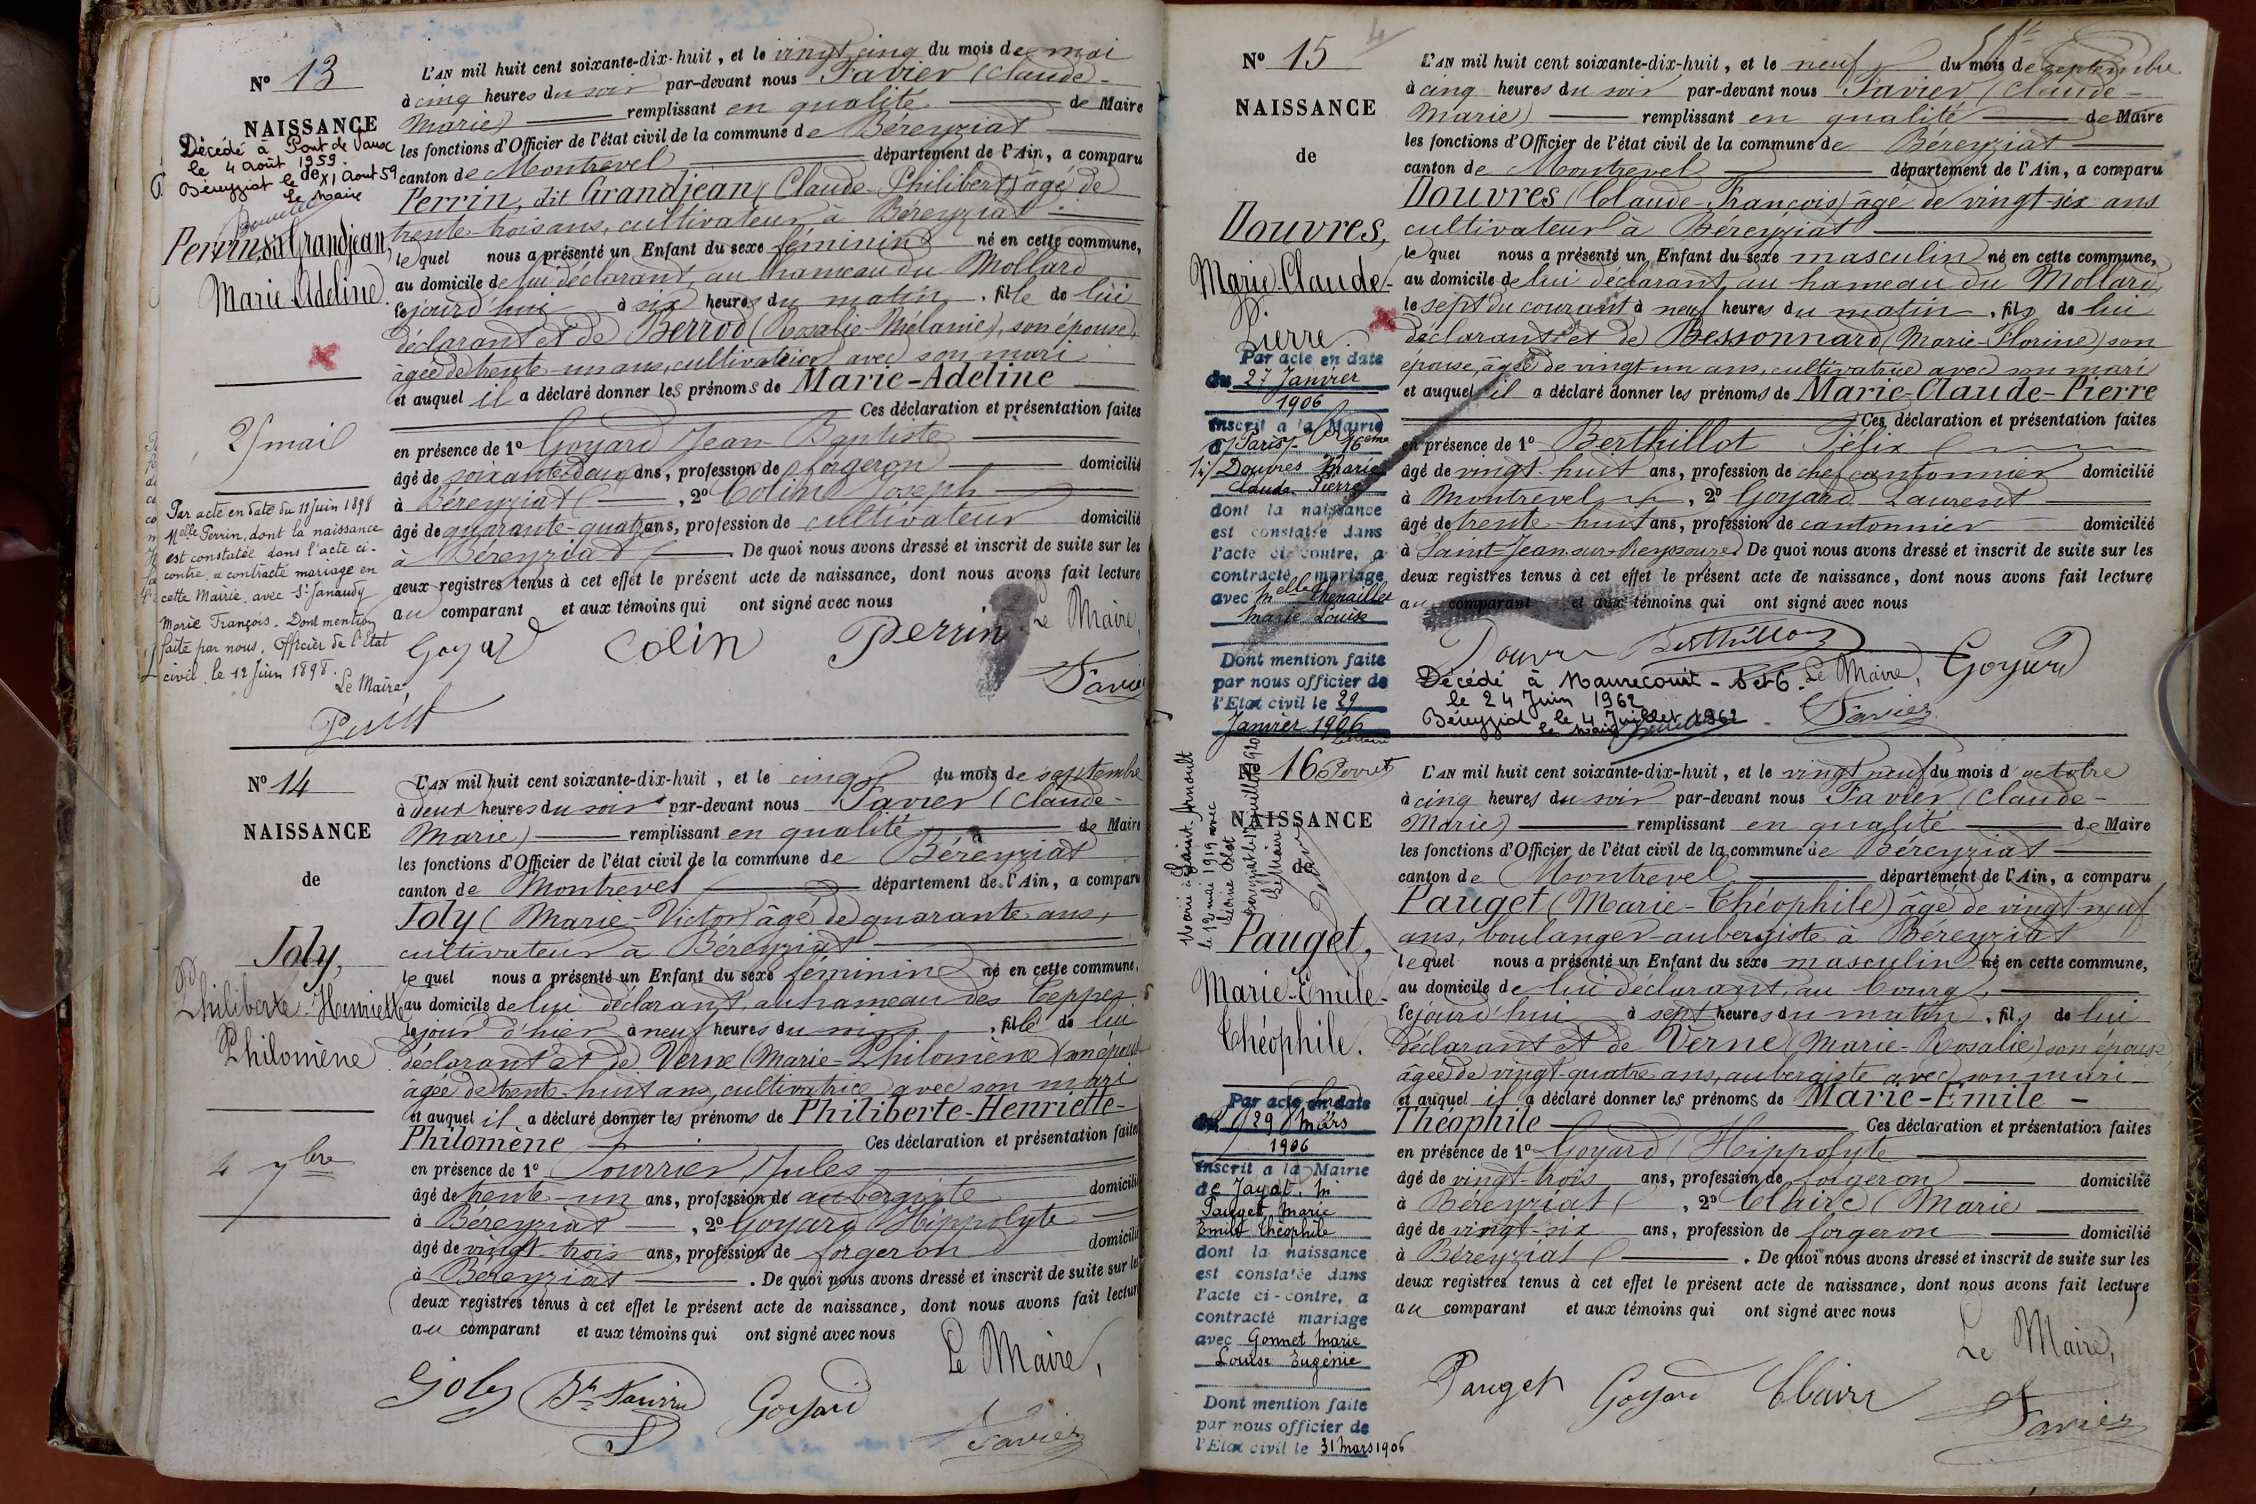 N° 13
NAISSANCE
Décédé à Pont de Vaux
le 4 Août 1959.
Béreyziat le XI Août 59
Le Maire
Perrin, dit Grandjean,
Marie Adeline.
25 mai
Par acte en date du 11 Juin 1898
Melle Perrin, dont la naissance
est constatée dans l'acte ci-
contre, a contracté mariage en
cette Mairie, avec Sr Janaudy
Marie François. Dont mention
faite par nous, Officier de l'Etat
civil, le 12 Juin 1898.
Le Maire,
L'AN mil huit cent soixante-dix-huit, et le vingt cinq du mois de mai
à cinq heures du soir par-devant nous Favier (Claude-
Marie) remplissant en qualité de Maire
les fonctions d'Officier de l'état civil de la commune de Béreyziat
canton de Montrevel département de l'Ain, a comparu
Perrin, dit Grandjean (Claude-Philibert) âgé de
trente-trois ans, cultivateur à Béreyziat
lequel nous a présenté un Enfant du sexe féminin né en cette commune,
au domicile de lui déclarant, au hameau du Mollard
lejourd'hui à six heures du matin, fille de lui
déclarant et de Berrod (Rosalie-Mélanie), son épouse,
âgée de trente-un ans, cultivatrice avec son mari
et auquel il a déclaré donner les prénoms de Marie-Adeline
Ces déclaration et présentation faites
en présence de 1° Goyard Jean-Baptiste
âgé de soixante-deux ans, profession de forgeron domicilié
à Béreyziat, 2° Colin Joseph
âgé de quarante-quatre ans, profession de cultivateur domicilié
à Béreyziat De quoi nous avons dressé et inscrit de suite sur les
deux registres tenus à cet effet le présent acte de naissance, dont nous avons fait lecture
au comparant et aux témoins qui ont signé avec nous
Goyard Colin Perrin Le Maire,
Favier
N° 14
NAISSANCE
de
Joly,
Philiberte-Henriette
Philomène
4 7bre
L'AN mil huit cent soixante-dix-huit, et le cinq du mois de septembre
à deux heures du soir par-devant nous Favier (Claude-
Marie) remplissant en qualité de Maire
les fonctions d'Officier de l'état civil de la commune de Béreyziat
canton de Montrevel département de l'Ain, a comparu
Joly (Marie-Victor) âgé de quarante ans,
cultivateur à Béreyziat
lequel nous a présenté un Enfant du sexe féminin né en cette commune,
au domicile de lui déclarant, au hameau des Teppes
lejour d'hier à neuf heures du soir, fille de lui
déclarant et de Verne (Marie-Philomène) son épouse
âgée de trente-huit ans, cultivatrice avec son mari
et auquel il a déclaré donner les prénoms de Philiberte-Henriette-
Philomène Ces déclaration et présentation faites
en présence de 1° Jules
âgé de trente-un ans, profession de aubergiste domicilié
à Béreyziat, 2° Goyard Hippolyte
âgé de vingt-trois ans, profession de forgeron domicilié
à Béreyziat. De quoi nous avons dressé et inscrit de suite sur les
deux registres tenus à cet effet le présent acte de naissance, dont nous avons fait lecture
au comparant et aux témoins qui ont signé avec nous
Le Maire,
Joly Goyard
Favier
4
N° 15
NAISSANCE
de
Douvres,
Marie-Claude-
Pierre.
Par acte en date
du 27 Janvier
1906
inscrit a la Mairie
d Paris 16eme
Douvres Marie
Claude Pierre
dont la naissance
est constatée dans
l'acte ci-contre, a
contracté mariage
avec Melle Chenaillet
Marie Louise
Dont mention faite
par nous officier de
l'Etat civil le 29
Janvier 1906
L'AN mil huit cent soixante-dix-huit, et le neuf du mois de septembre
à cinq heures du soir par-devant nous Favier (Claude-
Marie) remplissant en qualité de Maire
les fonctions d'Officier de l'état civil de la commune de Béreyziat
canton de Montrevel département de l'Ain, a comparu
Douvres (Claude-François) âgé de vingt-six ans
cultivateur à Béreyziat
lequel nous a présenté un Enfant du sexe masculin né en cette commune,
au domicile de lui déclarant, au hameau du Mollard,
le sept du courant à neuf heures du matin, fils de lui
déclarant et de Bessonnard (Marie-Florine) son
épouse, âgée de vingt-un ans, cultivatrice avec son mari
et auquel il a déclaré donner les prénoms de Marie-Claude-Pierre
Ces déclaration et présentation faites
en présence de 1° Berthillot Félix
âgé de vingt-huit ans, profession de chef cantonnier domicilié
à Montrevel, 2° Goyard Laurent
âgé de trente-huit ans, profession de cantonnier domicilié
à Saint-Jean-sur-Reyssouze De quoi nous avons dressé et inscrit de suite sur les
deux registres tenus à cet effet le présent acte de naissance, dont nous avons fait lecture
au comparant et aux témoins qui ont signé avec nous
Douvres Berthillot Le Maire, Goyard
Favier
Décédé à Maurecourt - S et O.
le 24 Juin 1962
Béreyziat le 4 Juillet 1962
le Maire
N° 16
NAISSANCE
de
Marié à Saint-Arnoult
le 12 mai 1919 avec
Pauget,
Marie-Emile-
Théophile.
Par acte en date
du 29 Mars
1906
inscrit a la Mairie
de Jayat. Mr
Pauget Marie
Emile Théophile
dont la naissance
est constatée dans
l'acte ci-contre, a
contracté mariage
avec Gonnet Marie
Louise Eugénie
Dont mention faite
par nous officier de
l'Etat civil le 31 Mars 1906
L'AN mil huit cent soixante-dix-huit, et le vingt neuf du mois d'octobre
à cinq heures du soir par-devant nous Favier (Claude-
Marie) remplissant en qualité de Maire
les fonctions d'Officier de l'état civil de la commune de Béreyziat
canton de Montrevel département de l'Ain, a comparu
Pauget (Marie-Théophile) âgé de vingt-neuf
ans, boulanger-aubergiste à Béreyziat
lequel nous a présenté un Enfant du sexe masculin né en cette commune,
au domicile de lui déclarant, au bourg,
lejourd'hui à sept heures du matin, fils de lui
déclarant et de Verne (Marie-Rosalie) son épouse
âgée de vingt-quatre ans, aubergiste avec son mari
et auquel il a déclaré donner les prénoms de Marie-Emile-
Théophile Ces déclaration et présentation faites
en présence de 1° Goyard Hippolyte
âgé de vingt-trois ans, profession de forgeron domicilié
à Béreyziat, 2° Claire Marie
âgé de vingt-six ans, profession de forgeron domicilié
à Béreyziat. De quoi nous avons dressé et inscrit de suite sur les
deux registres tenus à cet effet le présent acte de naissance, dont nous avons fait lecture
au comparant et aux témoins qui ont signé avec nous
Le Maire,
Pauget Goyard Claire
Favier